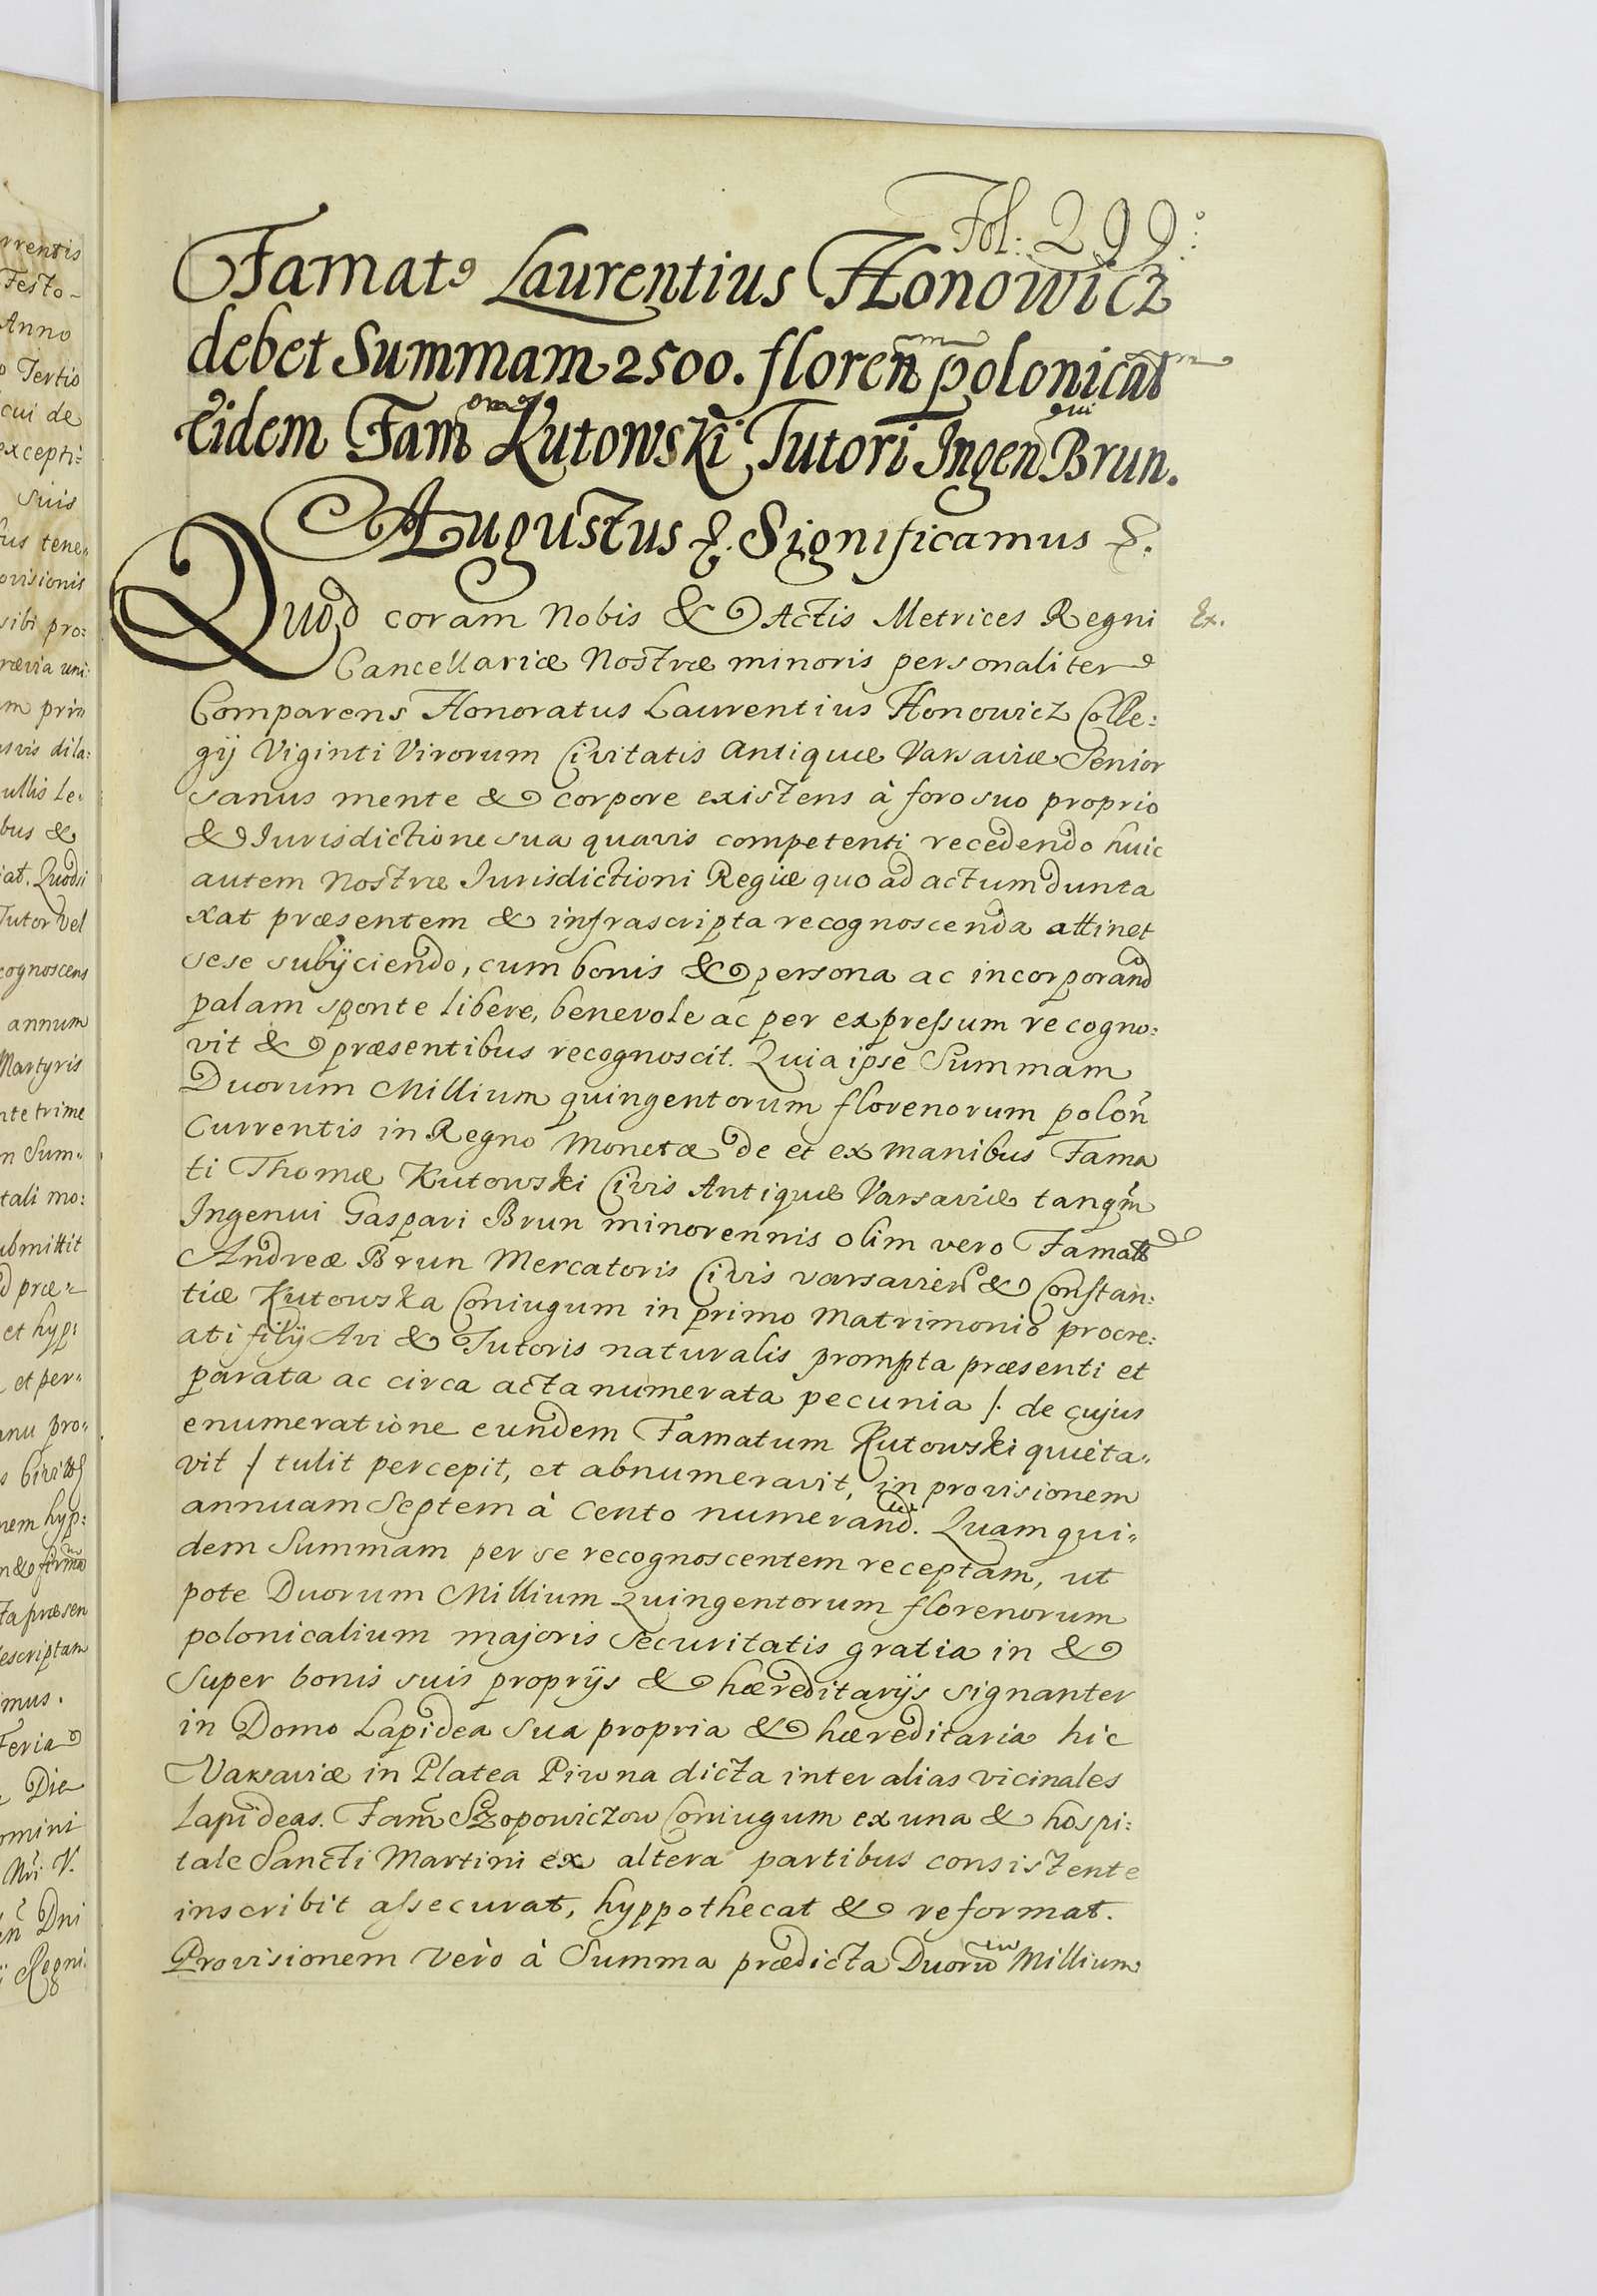 Fol: 299.
Famatꝰ Laurentius Honowicz
debet Summam 2500. floren̄ polonical
Eidem Fam Kutowski Tutori Ingen Brun.
Augustus &. Significamus &.
Quod coram Nobis & Actis Metrices Regni
Ex.
Cancellariæ Nostræ minoris personaliter
Comparens Honoratus Laurentius Honowicz Colle:
gij Viginti Virorum Civitatis Antiquæ Varsaviæ Senior
sanus mente & corpore existens à foro suo proprio
& Iurisdictione sua quavis competenti recedendo huic
autem Nostræ Iurisdictioni Regiæ quo ad actum dunta
xat præsentem & infrascripta recognoscenda attinet
sese subijciendo, cum bonis & persona ac incorporand
palam sponte libere, benevole ac per expressum recogno:
vit & præsentibus recognoscit. Quia ipse Summam
Duorum Millium quingentorum florenorum polon̄
Currentis in Regno Monetæ de et ex manibus Fama
ti Thomæ Kutowski Civis Antiquæ Varsaviæ tanqm̄
Ingenui Gaspari Brun minorennis olim vero Famatt
Andreæ Brun Mercatoris Civis varsavien & Constan:
tiæ Kutowska Coniugum in primo Matrimonio procre:
ati filij Avi & Tutoris naturalis prompta præsenti et
parata ac circa acta numerata pecunia /. de cujus
enumeratione eundem Famatum Kutowski quieta„
vit / tulit percepit, et abnumeravit, in provisionem
annuam Septem à Cento numerand. Quam qui„
dem Summam per se recognoscentem receptam, ut
pote Duorum Millium Quingentorum florenorum
polonicalium majoris Securitatis gratia in &
Super bonis suis proprijs & hæreditarijs signanter
in Domo Lapidea Sua propria & hæreditaria hic
Varsaviæ in Platea Piwna dicta inter alias vicinales
Lapideas. Fam̄ Szopowiczow Coniugum ex una & hospi:
tale Sancti Martini ex altera partibus consistente
inscribit assecurat, hyppothecat & reformat.
Provisionem verò à Summa prædicta Duorū Millium